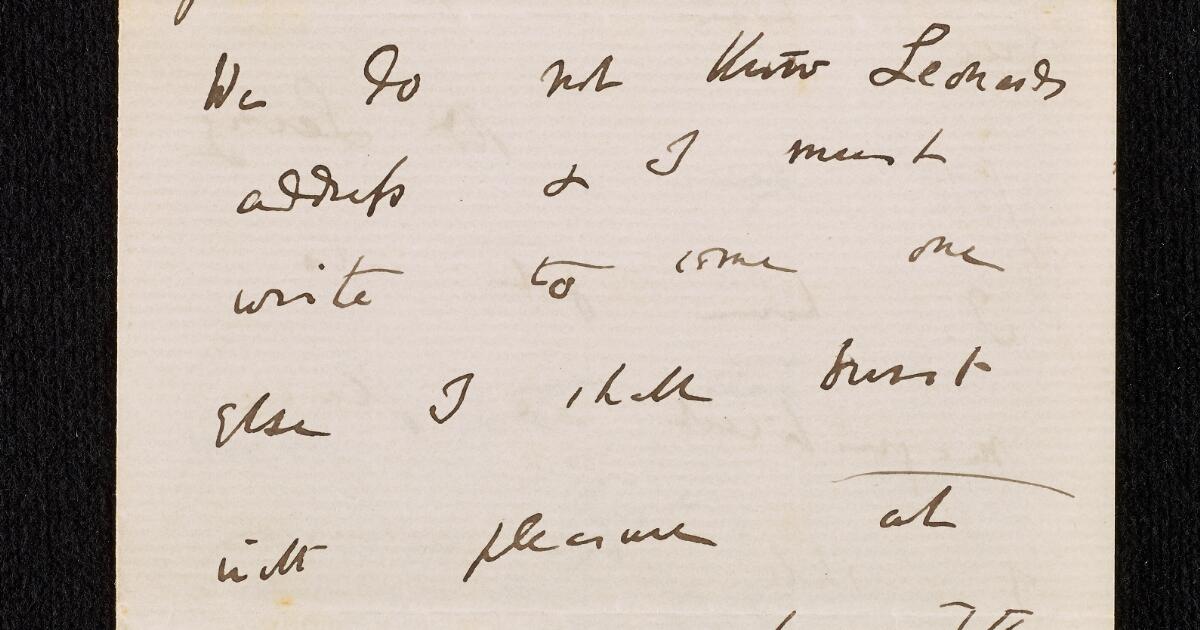 We do not know Leonards
address & I must
write to some one
Else I shall burst
with pleasure at